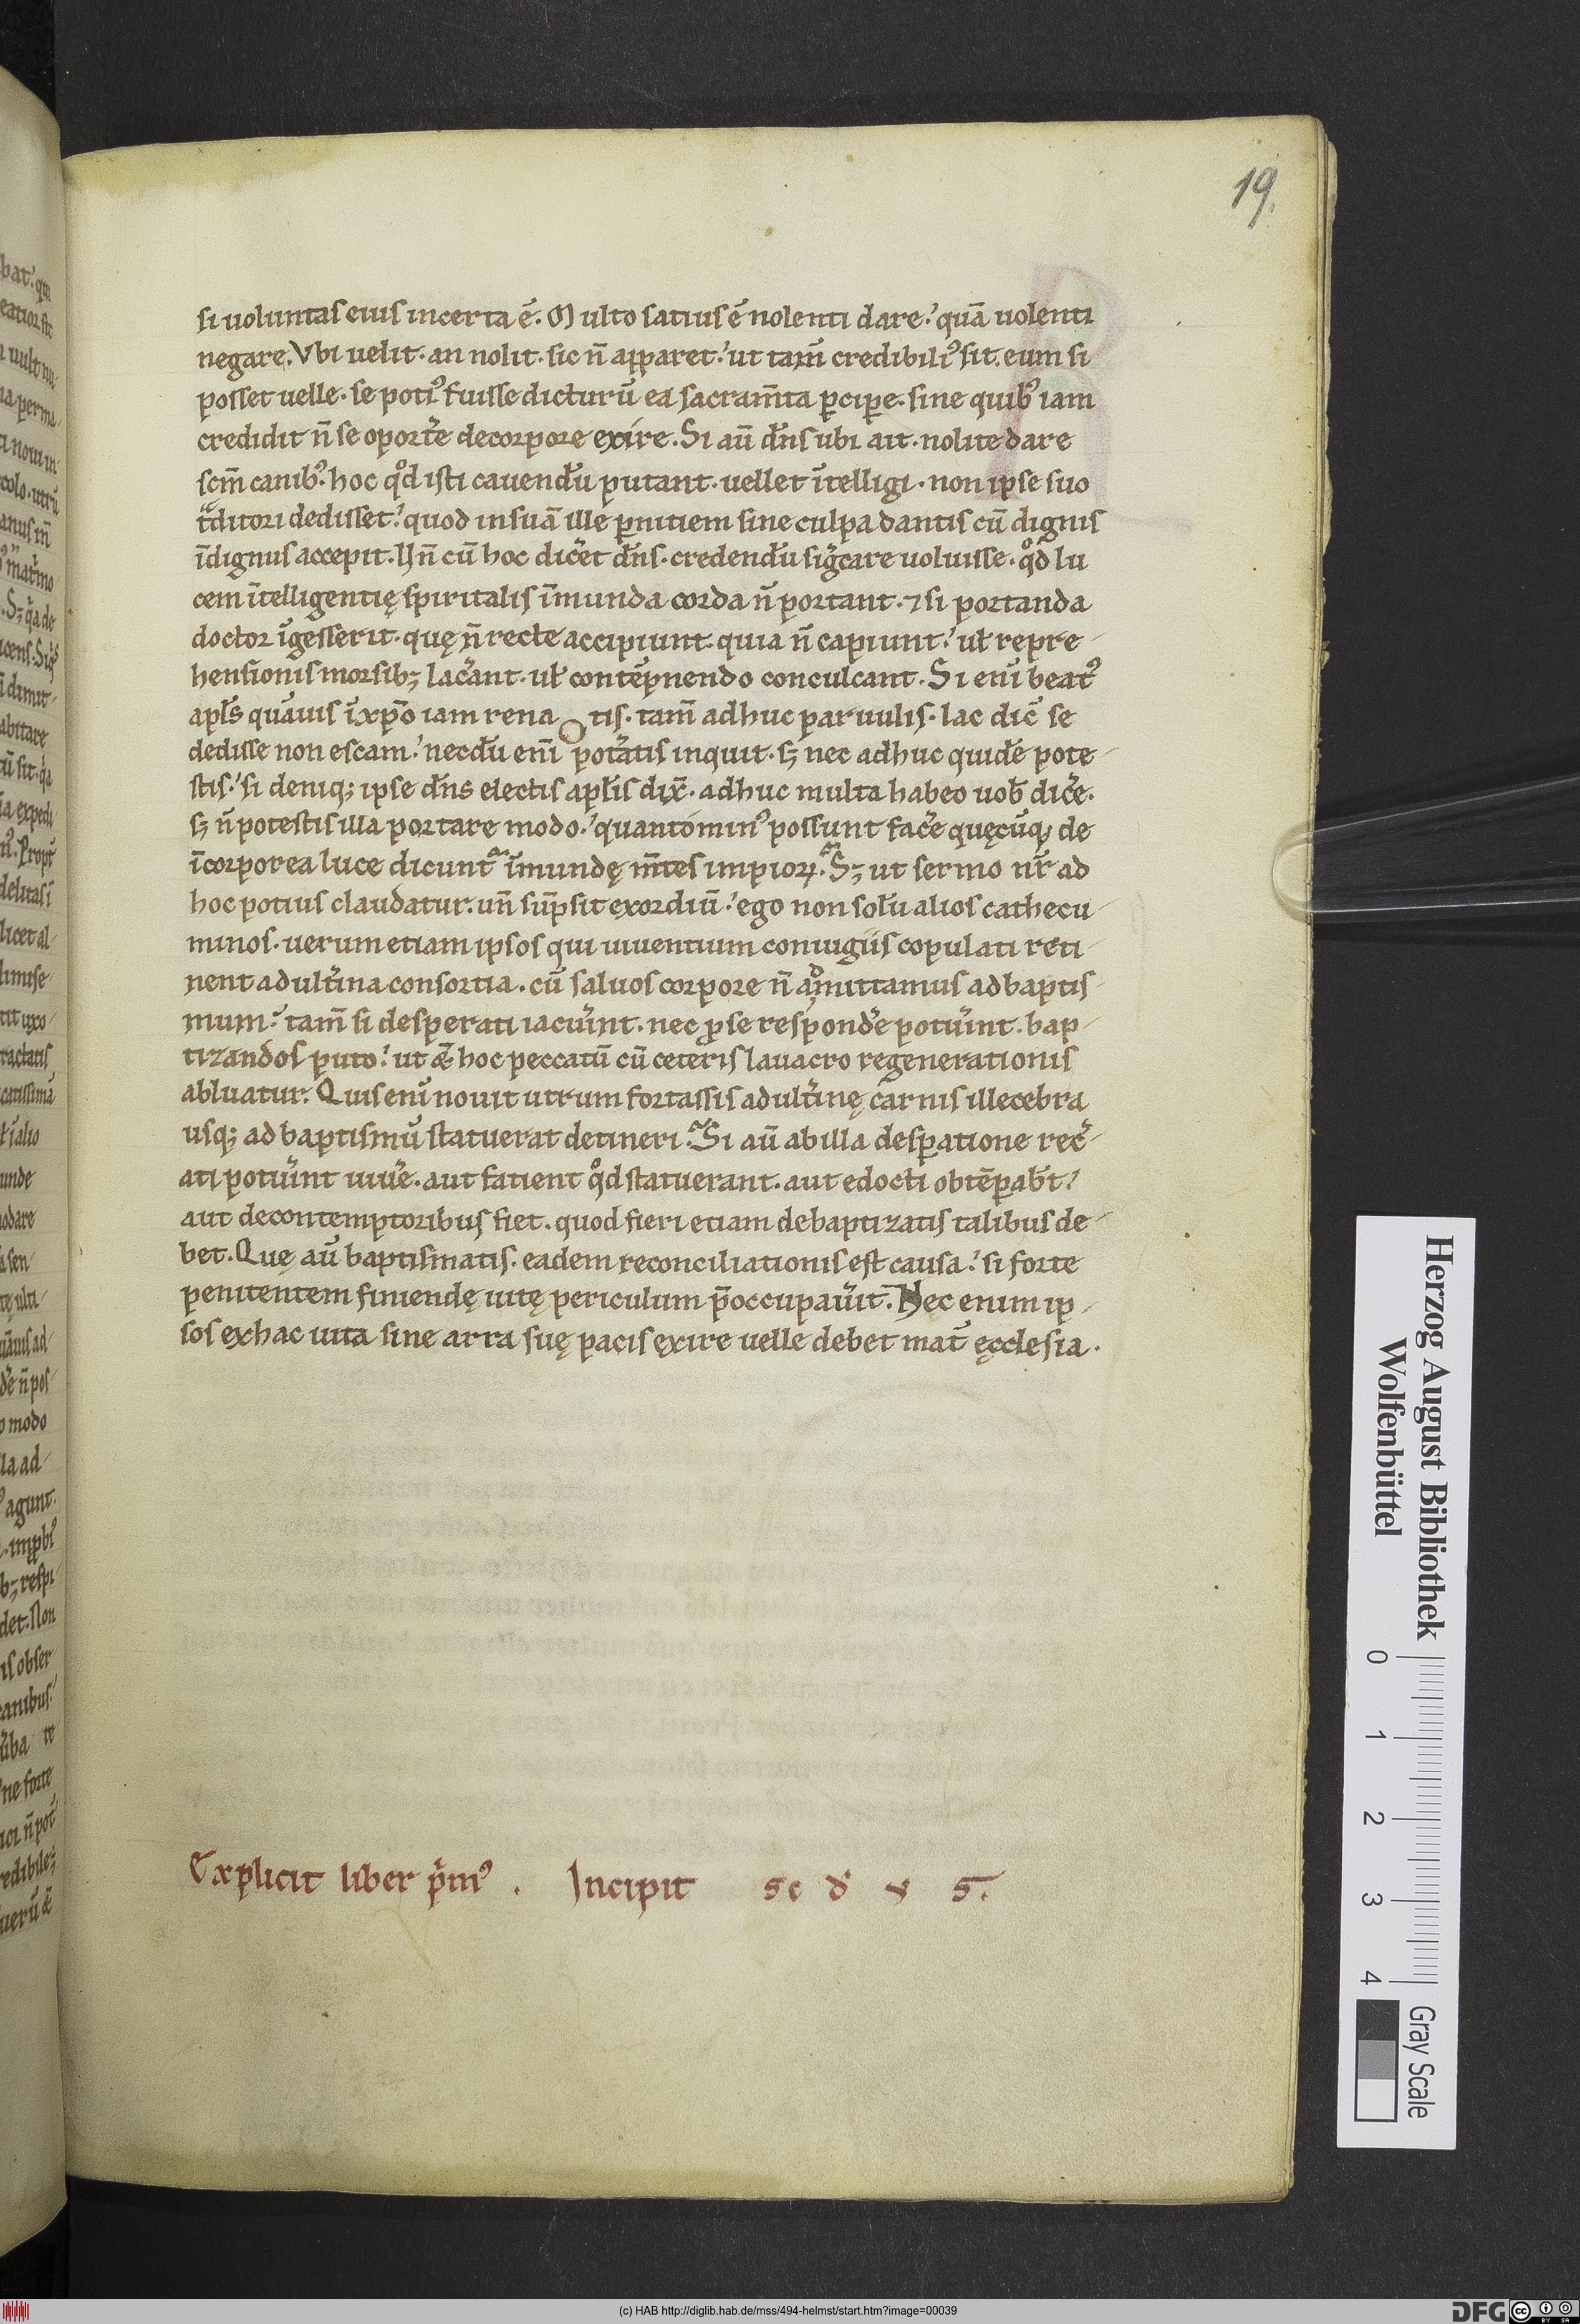 19.
si uoluntas eius incerta ē. Multo satius ē nolenti dare.' quā uolenti
negare. Vbi uelit. an nolit. sic n̄ apparet.' ut tam̄ credibiliꝰ sit. eum si
posset uelle. se potiꝰ fuisse dicturū ea sacram̄ta ꝑciꝑe. sine quibꝰ iam
credidit n̄ se oporte᷒ decorpore exire. Si aū dn̄s ubi ait. nolite dare
scm̄ canibꝰ. hoc qͦd isti cauendū putant. uellet ītelligi. non ipse suo
tͣditori dedisset.' quod insuā ille ꝑnitiem sine culpa dantis cū dignis
īdignus accepit. Vn̄ cū hoc dic̄et dn̄s. credendū sigͥcare uoluisse. qͦd lu
cem ītelligentię spiritalis īmunda corda n̄ portant. ⁊ si portanda
doctor īgesserit. quę n̄ recte accipiunt. quia n̄ capiunt.' ul̄ repre
hensionis morsibꝫ lac̄ant. ul̄ contēpnendo conculcant. Si enī beatꝰ
apl̄s quāuis īxp̄o iam rena tis. tam̄ adhuc paruulis. lac dic̄ se
dedisse non escam.' necdū enī pot̄atis inquit. sꝫ nec adhuc quidē pote
stis.' si deniqꝫ ipse dn̄s electis apl̄is dix̄. adhuc multa habeo uob̄ dic̄e.
sꝫ n̄ potestis illa portare modo.' quantominꝰ possunt fac̄e quęcūqꝫ de
īcorporea luce dicunt᷒ īmundę m̄tes impioꝝ. Sꝫ ut sermo nr̄ ad
hoc potius claudatur. un̄ sūpsit exordiū.' ego non solū alios cathecu
minos. uerum etiam ipsos qui uiuentium coniugiis copulati reti
nent adult̄ina consortia. cū saluos corpore n̄ admittamus ad baptis
mum.' tam̄ si desperati iacūint. nec ꝓse respondē potūint. bap
tizandos puto.' ut & hoc peccatū cū ceteris lauacro regenerationis
abluatur. Quis enī nouit utrum fortassis adult̄inę carnis illecebra
usqꝫ ad baptismū statuerat detineri. Si aū ab illa desꝑatione rec̄
ati potūint uiūe. aut fatient qͦd statuerant. aut edocti obtēꝑab̄t.'
aut decontemptoribus fiet. quod fieri etiam debaptizatis talibus de
bet. Quę aū baptismatis. eadem reconciliationis est causa.' si forte
penitentem finiendę uitę periculum p̄occupaūit. Nec enim ip
sos exhac uita sine arra suę pacis exire uelle debet mat̄ ęcclesia.
Explicit liber pͥmꝰ. Incipit secdvs.
Herzog August Bibliothek
Wolfenbüttel
0 1 2 3 4
Gray Scale
(c) HAB http://diglib.hab.de/mss/494-helmst/start.htm?image=00039
DFG
cc BY SA